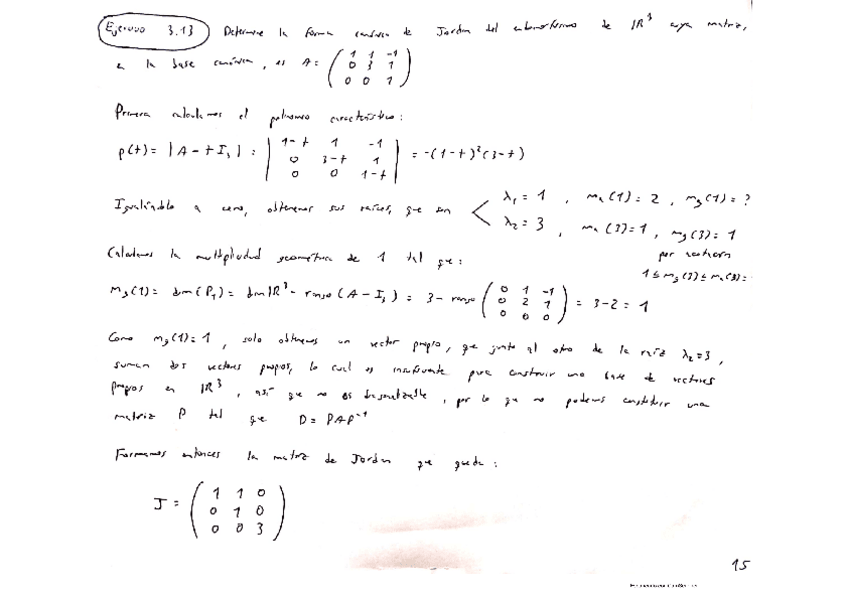 Ejercicio 3.13 Determine la forma canónica de Jordan del endomorfismo de IR³ cuya matriz,
en la base canónica, es A = ( 1 1 -1 ; 0 3 1 ; 0 0 1 )
Primero calculamos el polinomio característico:
p(t) = |A - t I₃| = | 1-t 1 -1 ; 0 3-t 1 ; 0 0 1-t | = -(1-t)²(3-t)
Igualándolo a cero, obtenemos sus raíces, que son
λ₁ = 1 , ma(1) = 2 , mg(1) = ?
λ₂ = 3 , ma(3) = 1 , mg(3) = 1
por
1 ≤ mg(3) ≤ ma(3) =
Calculamos la multiplicidad geométrica de 1 tal que:
mg(1) = dim(P₁) = dim IR³ - rango(A - I₃) = 3 - rango ( 0 1 -1 ; 0 2 1 ; 0 0 0 ) = 3-2 = 1
Como mg(1) = 1 , solo obtenemos un vector propio, que junto al otro de la raíz λ₂=3 ,
suman dos vectores propios, lo cual es insuficiente para construir una base de vectores
propios en IR³ , así que no es diagonalizable , por lo que no podemos construir una
matriz P tal que D = PAP⁻¹
Formamos entonces la matriz de Jordan que queda :
J = ( 1 1 0 ; 0 1 0 ; 0 0 3 )
15